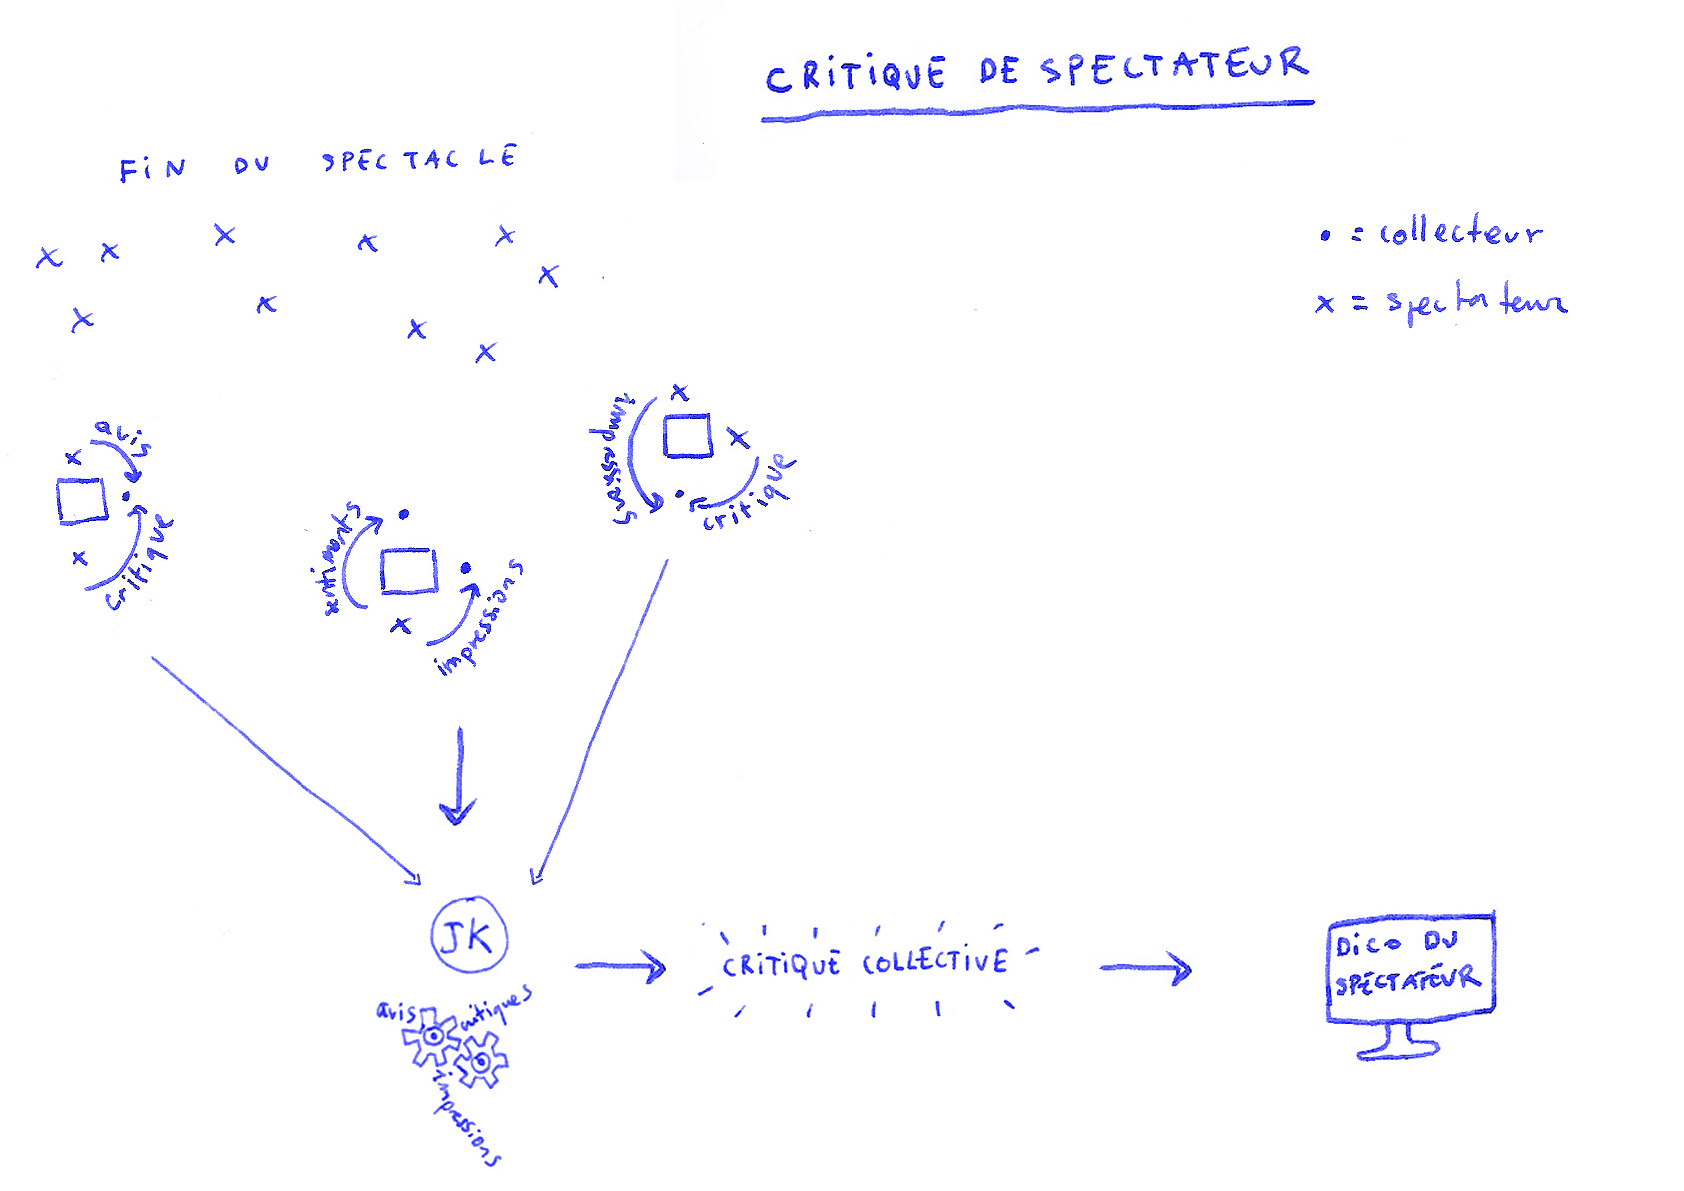 CRITIQUE DE SPECTATEUR
FIN DU SPECTACLE
• = collecteur
x = spectateur
avis
critique
sentiments
impressions
impressions
critique
JK
avis
critiques
impressions
CRITIQUE COLLECTIVE
DICO DU
SPECTATEUR